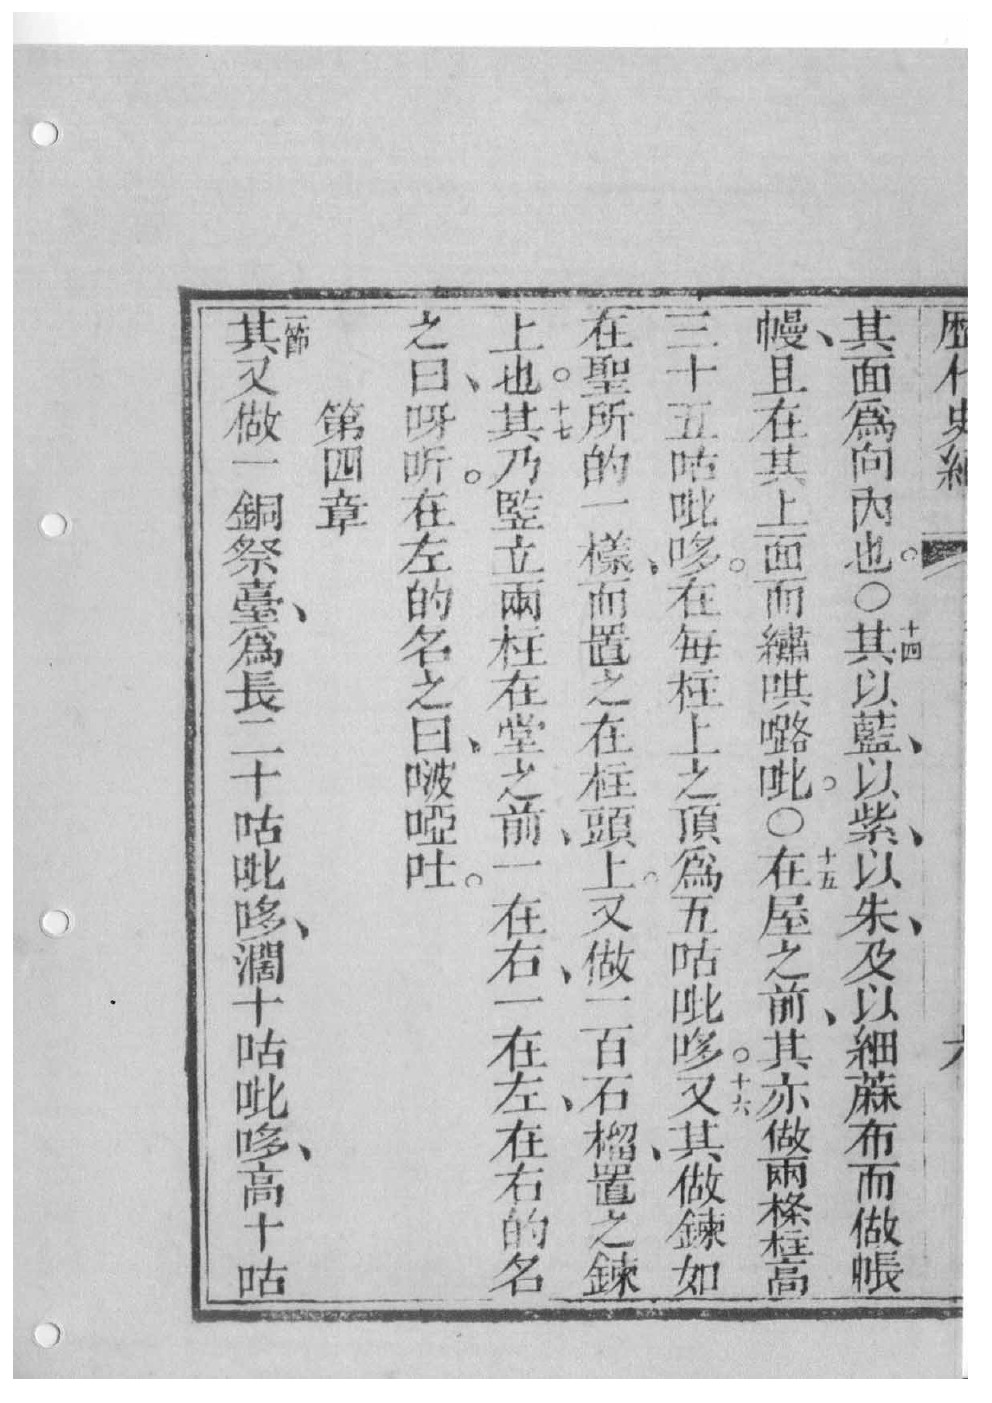 歷代史紀 六
其面爲向內也。〇十四其以藍、以紫、以朱、及以細蔴布而做帳
幔、且在其上面而繡哄嚕吡。〇十五在屋之前、其亦做兩條柱高
三十五咕吡哆。在每柱上之頂爲五咕吡哆。十六又其做鍊如
在聖所的一樣、而置之在柱頭上。又做一百石榴、置之鍊
上也。十七其乃竪立兩柱在堂之前、一在右、一在左、在右的名
之曰、呀听。在左的名之曰、啵啞吐。
第四章
一節其又做一銅祭臺、爲長二十咕吡哆、濶十咕吡哆、高十咕